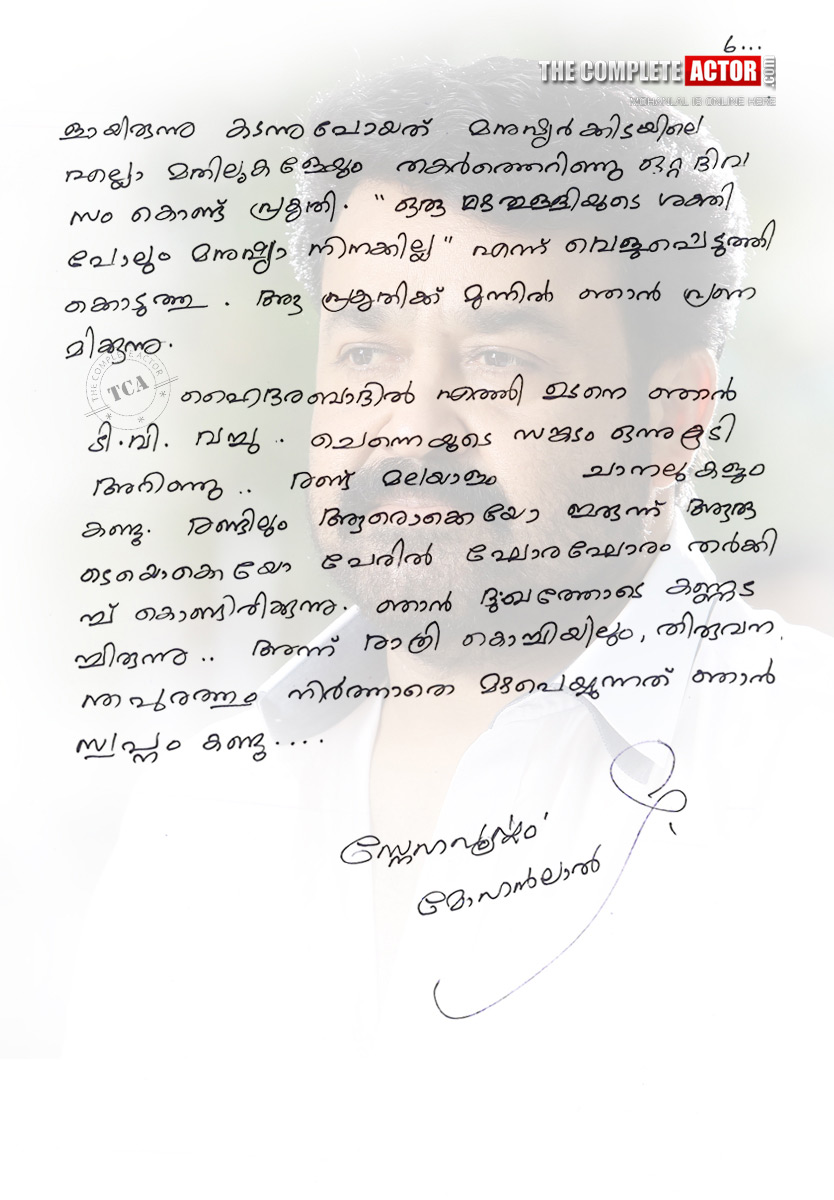 6...
THE COMPLETE ACTOR .com
MOHANLAL IS ONLINE HERE
ളായിരുന്നു കടന്നുപോയത് മനുഷ്യർക്കിടയിലെ
എല്ലാ മതിലുകളേയും തകർത്തെറിഞ്ഞു ഒറ്റ ദിവ
സം കൊണ്ട് പ്രകൃതി. " ഒരു മഴത്തുള്ളിയുടെ ശക്തി
പോലും മനുഷ്യാ നിനക്കില്ല " എന്ന് വെളുപ്പെടുത്തി
ക്കൊടുത്തു . ആ പ്രകൃതിക്ക് മുന്നിൽ ഞാൻ പ്രണ
മിക്കുന്നു.
THE COMPLETE ACTOR
TCA
ഹൈദരബാദിൽ എത്തി ഉടനെ ഞാൻ
ടി.വി. വച്ചു .. ചെന്നൈയുടെ സങ്കടം ഒന്നുകൂടി
അറിഞ്ഞു .. രണ്ട് മലയാളം ചാനലുകളും
കണ്ടു. രണ്ടിലും ആരൊക്കെയോ ഇരുന്ന് ആരു
ടെയൊക്കെയോ പേരിൽ ഘോരഘോരം തർക്കി
ച്ച് കൊണ്ടിരിക്കുന്നു. ഞാൻ ദുഃഖത്തോടെ കണ്ണട
ച്ചിരുന്നു .. അന്ന് രാത്രി കൊച്ചിയിലും, തിരുവന
ന്തപുരത്തും നിർത്താതെ മഴപെയ്യുന്നത് ഞാൻ
സ്വപ്നം കണ്ടു ....
സ്നേഹപൂർവ്വം
മോഹൻലാൽ